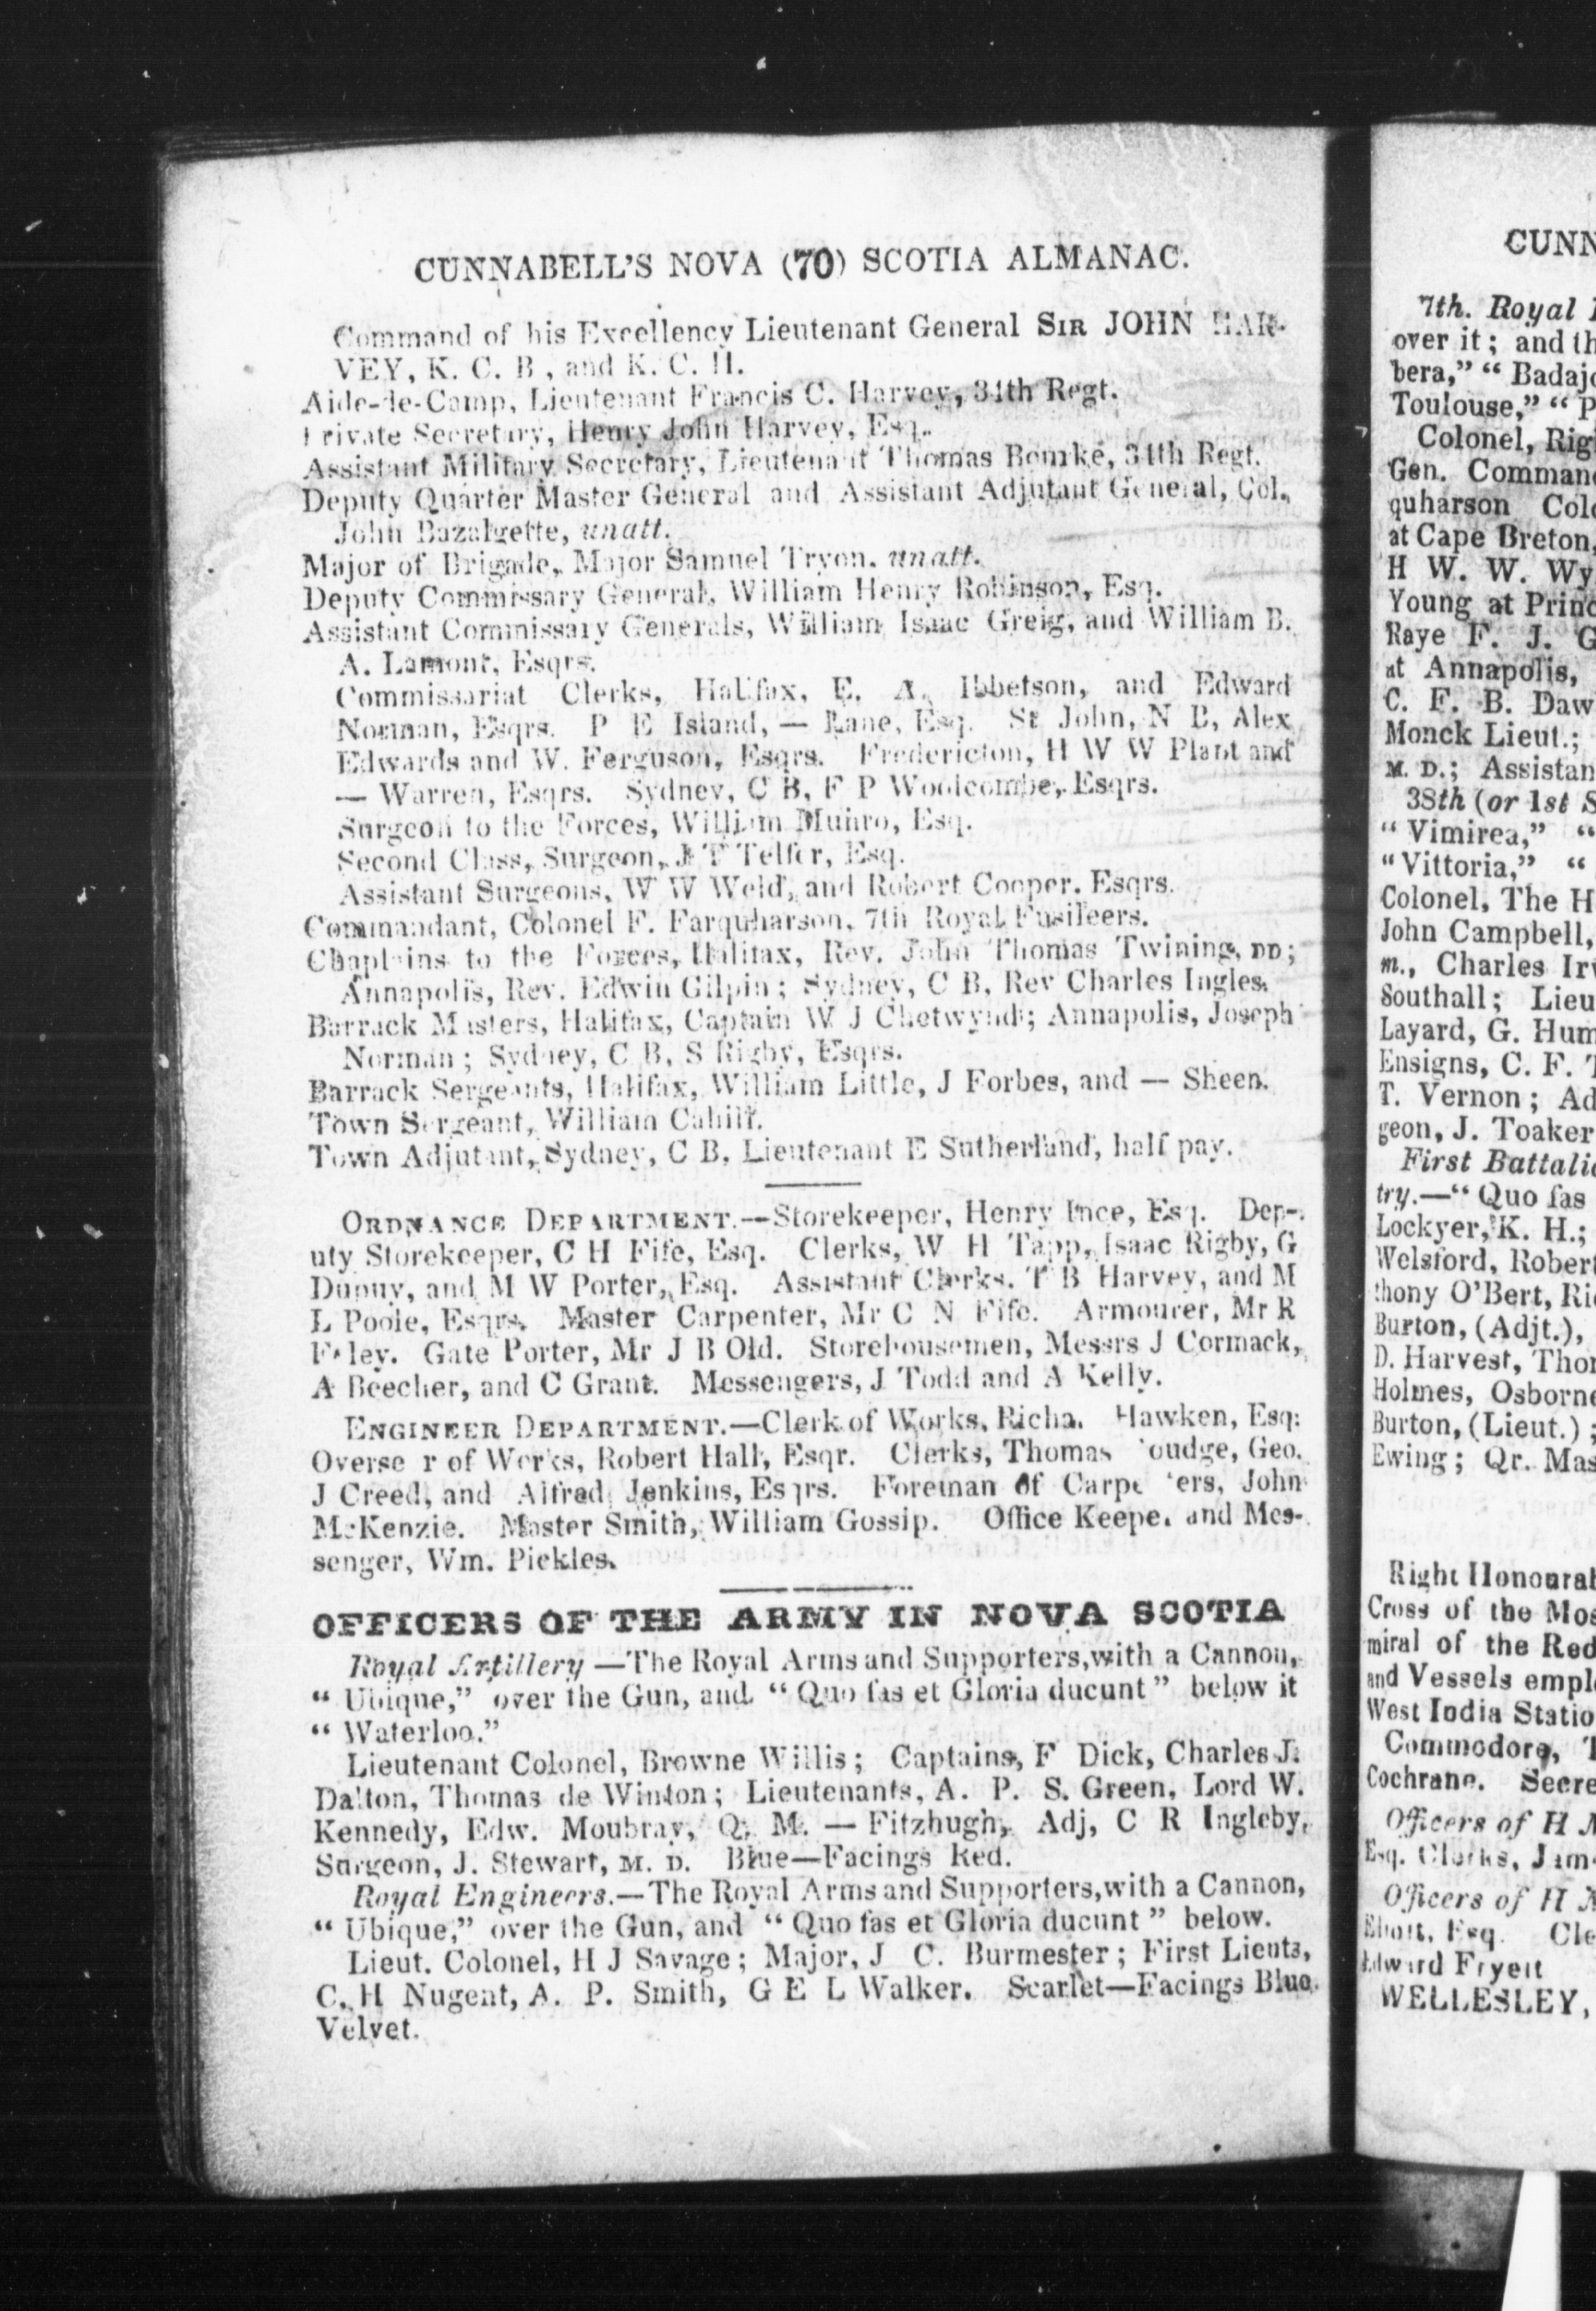 CUNNABELL'S NOVA (70) SCOTIA ALMANAC.
Command of his Excellency Lieutenant General SIR JOHN HAR-
VEY, K. C. B, and K. C. H.
Aide-de-Camp, Lieutenant Francis C. Harvey, 34th Regt.
Private Secretary, Henry John Harvey, Esq.
Assistant Military Secretary, Lieutenant Thomas Bourke, 34th Regt.
Deputy Quarter Master General and Assistant Adjutant General, Col.
John Bazalgette, unatt.
Major of Brigade, Major Samuel Tryon. unatt.
Deputy Commissary General, William Henry Robinson, Esq.
Assistant Commissary Generals, William Isaac Greig, and William B.
A. Lamont, Esqrs.
Commissariat Clerks, Halifax, E. A. Ibbetson, and Edward
Norman, Esqrs. P E Island, — Lane, Esq. St John, N B, Alex
Edwards and W. Ferguson, Esqrs. Fredericton, H W W Plant and
— Warren, Esqrs. Sydney, C B, F P Woolcombe, Esqrs.
Surgeon to the Forces, William Munro, Esq.
Second Class, Surgeon, J T Telfer, Esq.
Assistant Surgeons, W W Weld, and Robert Cooper. Esqrs.
Commandant, Colonel F. Farquharson, 7th Royal Fusileers.
Chaplains to the Forces, Halifax, Rev. John Thomas Twining, DD;
Annapolis, Rev. Edwin Gilpin; Sydney, C B, Rev Charles Ingles.
Barrack Masters, Halifax, Captain W J Chetwynd; Annapolis, Joseph
Norman; Sydney, C B, S Rigby, Esqrs.
Barrack Sergeants, Halifax, William Little, J Forbes, and — Sheen.
Town Sergeant, William Cahill.
Town Adjutant, Sydney, C B, Lieutenant E Sutherland, half pay.
ORDNANCE DEPARTMENT.—Storekeeper, Henry Ince, Esq. Dep-
uty Storekeeper, C H Fife, Esq. Clerks, W H Tapp, Isaac Rigby, G
Dupuy, and M W Porter, Esq. Assistant Clerks. T B Harvey, and M
L Poole, Esqrs. Master Carpenter, Mr C N Fife. Armourer, Mr R
ley. Gate Porter, Mr J B Old. Storehousemen, Messrs J Cormack,
A Beecher, and C Grant. Messengers, J Todd and A Kelly.
ENGINEER DEPARTMENT.—Clerk of Works, Richd. Hawken, Esq:
Overse r of Works, Robert Hall, Esqr. Clerks, Thomas oudge, Geo.
J Creed, and Alfred Jenkins, Esqrs. Foreman of Carpe ers, John
McKenzie. Master Smith, William Gossip. Office Keepe. and Mes-
senger, Wm. Pickles.
OFFICERS OF THE ARMY IN NOVA SCOTIA
Royal Artillery —The Royal Arms and Supporters, with a Cannon,
“ Ubique,” over the Gun, and “ Quo fas et Gloria ducunt ” below it
“ Waterloo.”
Lieutenant Colonel, Browne Willis; Captains, F Dick, Charles J.
Dalton, Thomas de Winton; Lieutenants, A. P. S. Green, Lord W.
Kennedy, Edw. Moubray, Q. M. — Fitzhugh, Adj, C R Ingleby,
Surgeon, J. Stewart, M. D. Blue—Facings Red.
Royal Engineers.—The Royal Arms and Supporters, with a Cannon,
“ Ubique,” over the Gun, and “ Quo fas et Gloria ducunt ” below.
Lieut. Colonel, H J Savage; Major, J C. Burmester; First Lieuts,
C. H Nugent, A. P. Smith, G E L Walker. Scarlet—Facings Blue
Velvet.
CUNN
7th. Royal
over it; and th
bera,” “ Badajo
Toulouse,” “ P
Colonel, Rig
Gen. Command
quharson Colo
at Cape Breton,
H W. W. Wy
Young at Princ
Raye F. J. G
at Annapolis,
C. F. B. Daw
Monck Lieut.;
M. D.; Assistan
38th (or 1st S
“ Vimirea,” “
“ Vittoria,” “
Colonel, The H
John Campbell,
m., Charles Irv
Southall; Lieu
Layard, G. Hum
Ensigns, C. F. T
T. Vernon; Ad
geon, J. Toaker
First Battalio
try.—“ Quo fas
Lockyer, K. H.;
Welsford, Robert
thony O'Bert, Ri
Burton, (Adjt.),
D. Harvest, Thor
Holmes, Osborne
Burton, (Lieut.);
Ewing; Qr. Mas
Right Honourab
Cross of the Mos
miral of the Red
and Vessels empl
West India Statio
Commodore, T
Cochrane. Secre
Officers of H M
Esq. Clerks, Jam
Officers of H M
Eliott, Esq. Cle
Edward Fryett
WELLESLEY,